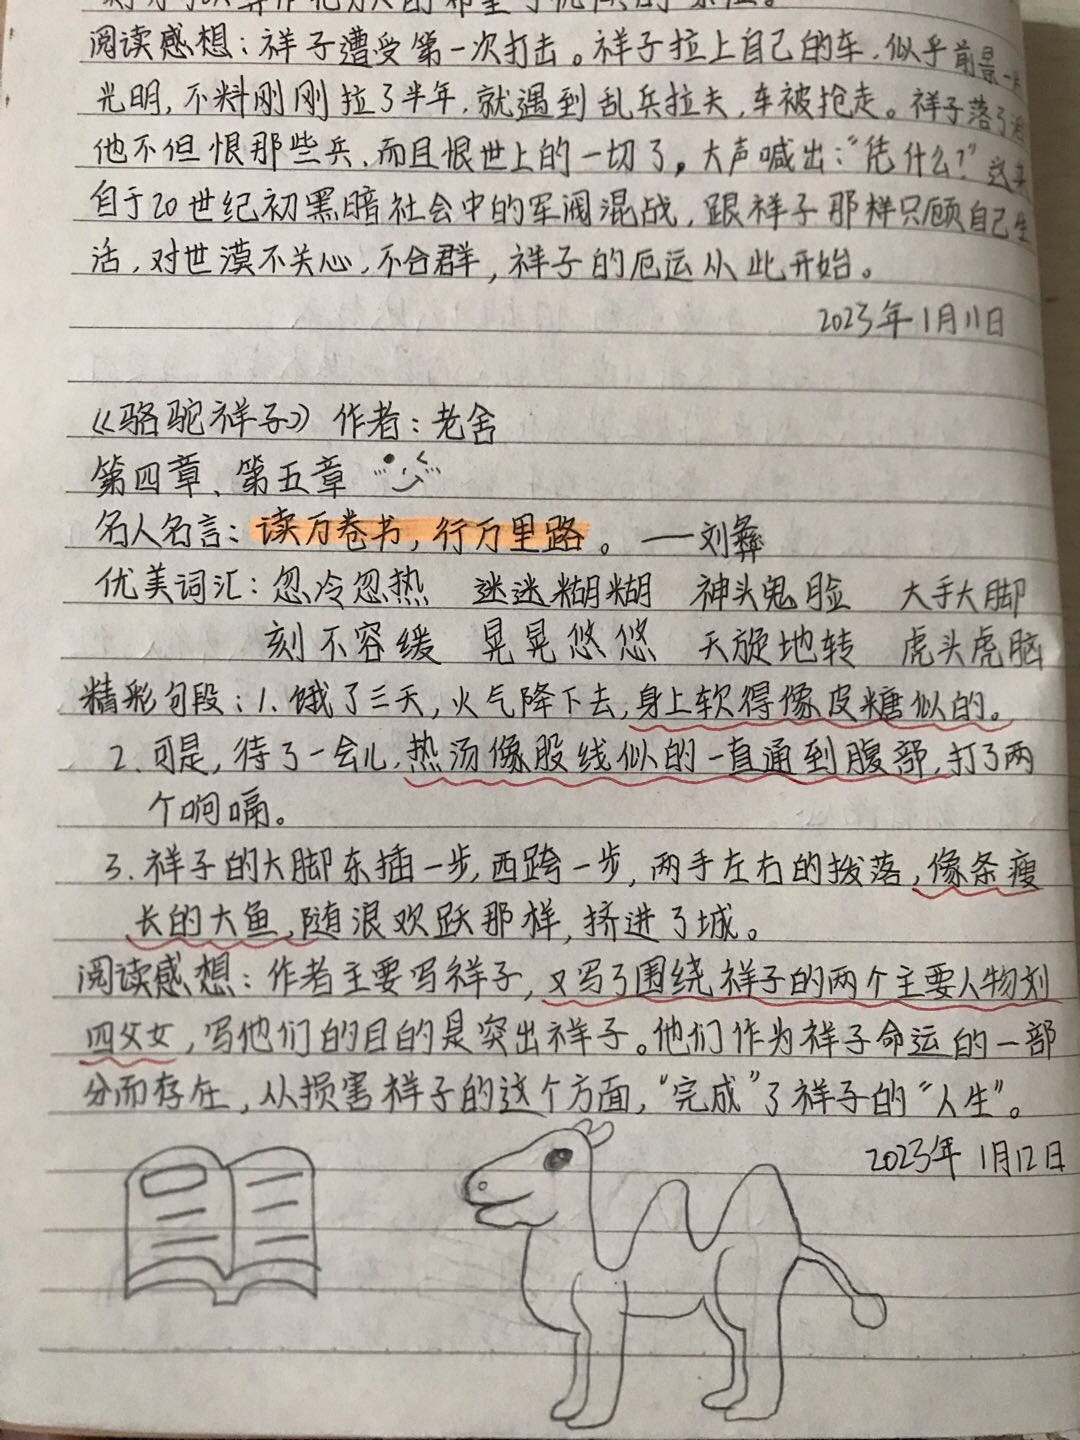 阅读感想：祥子遭受第一次打击。祥子拉上自己的车，似乎前景一片
光明，不料刚刚拉了半年，就遇到乱兵拉夫，车被抢走。祥子落了泪
他不但恨那些兵、而且恨世上的一切了。大声喊出：“凭什么？”这来
自于20世纪初黑暗社会中的军阀混战，跟祥子那样只顾自己生
活，对世漠不关心，不合群，祥子的厄运从此开始。
2023年1月11日
《骆驼祥子》作者：老舍
第四章、第五章
名人名言：读万卷书，行万里路。——刘彝
优美词汇：忽冷忽热 迷迷糊糊 神头鬼脸 大手大脚
刻不容缓 晃晃悠悠 天旋地转 虎头虎脑
精彩句段：1.饿了三天，火气降下去，身上软得像皮糖似的。
2.可是，待了一会儿，热汤像股线似的一直通到腹部，打了两
个响嗝。
3.祥子的大脚东插一步，西跨一步，两手左右的拨落，像条瘦
长的大鱼，随浪欢跃那样，挤进了城。
阅读感想：作者主要写祥子，又写了围绕祥子的两个主要人物刘
四父女，写他们的目的是突出祥子。他们作为祥子命运的一部
分而存在，从损害祥子的这个方面，“完成”了祥子的“人生”。
2023年1月12日